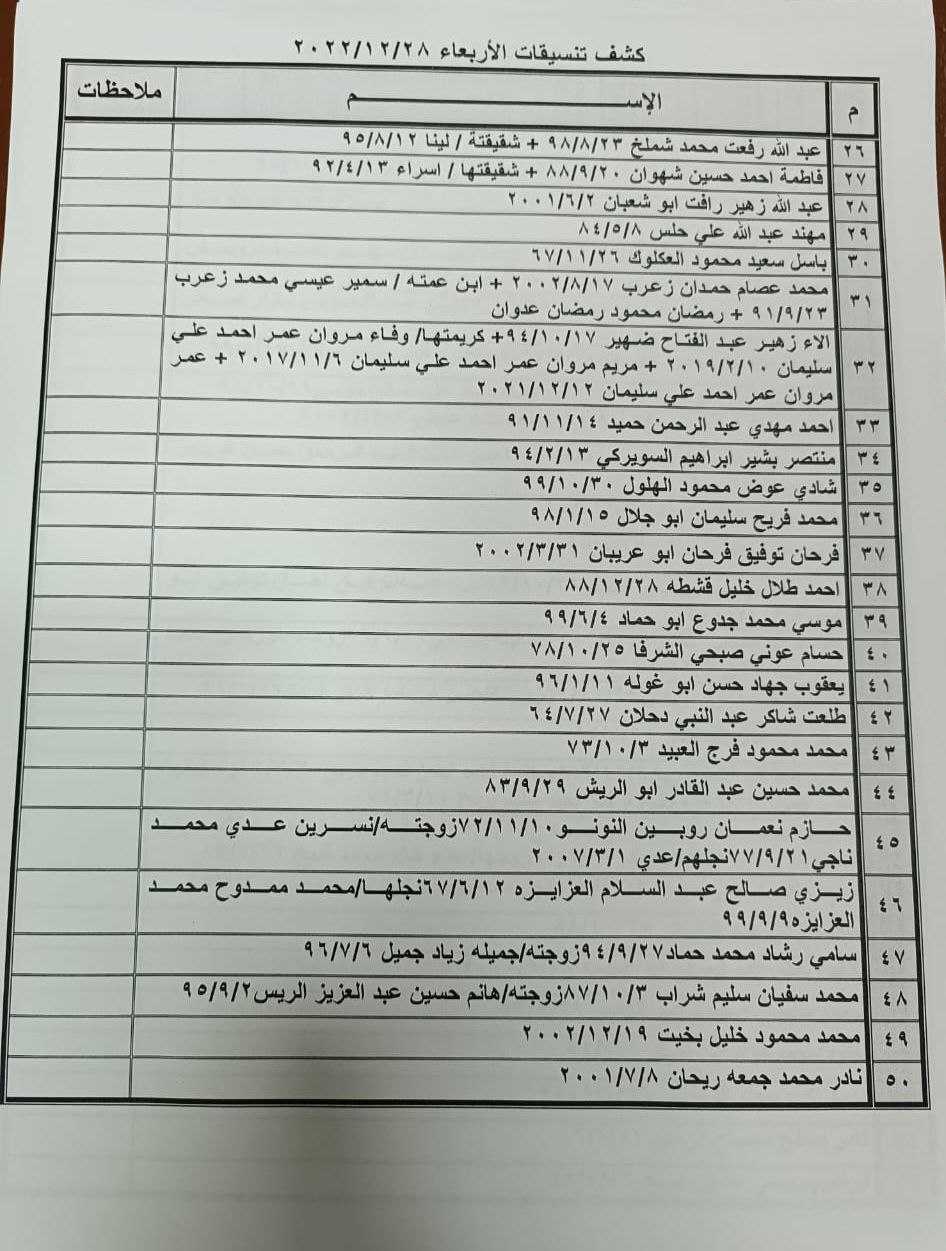 كشف تنسيقات الأربعاء ٢٠٢٢/١٢/٢٨
م الإســـــم ملاحظات
٢٦ عبد الله رفعت محمد شملخ ٩٨/٨/٢٣ + شقيقتة / لينا ٩٥/٨/١٢
٢٧ فاطمة احمد حسين شهوان ٨٨/٩/٢٠ + شقيقتها / اسراء ٩٢/٤/١٣
٢٨ عبد الله زهير رافت ابو شعبان ٢٠٠١/٦/٢
٢٩ مهند عبد الله علي حلس ٨٤/٥/٨
٣٠ باسل سعيد محمود العكلوك ٦٧/١١/٢٦
٣١ محمد عصام حمدان زعرب ٢٠٠٢/٨/١٧ + ابن عمته / سمير عيسي محمد زعرب
٩١/٩/٢٣ + رمضان محمود رمضان عدوان
٣٢ الاء زهير عبد الفتاح ضهير ٩٤/١٠/١٧+ كريمتها/ وفاء مروان عمر احمد علي
سليمان ٢٠١٩/٢/١٠ + مريم مروان عمر احمد علي سليمان ٢٠١٧/١١/٦ + عمر
مروان عمر احمد علي سليمان ٢٠٢١/١٢/١٢
٣٣ احمد مهدي عبد الرحمن حميد ٩١/١١/١٤
٣٤ منتصر بشير ابراهيم السويركي ٩٤/٢/١٣
٣٥ شادي عوض محمود الهلول ٩٩/١٠/٣٠
٣٦ محمد فريح سليمان ابو جلال ٩٨/١/١٥
٣٧ فرحان توفيق فرحان ابو عريبان ٢٠٠٢/٣/٣١
٣٨ احمد طلال خليل قشطه ٨٨/١٢/٢٨
٣٩ موسي محمد جدوع ابو حماد ٩٩/٦/٤
٤٠ حسام عوني صبحي الشرفا ٧٨/١٠/٢٥
٤١ يعقوب جهاد حسن ابو غوله ٩٦/١/١١
٤٢ طلعت شاكر عبد النبي دحلان ٦٤/٧/٢٧
٤٣ محمد محمود فرج العبيد ٧٣/١٠/٣
٤٤ محمد حسين عبد القادر ابو الريش ٨٣/٩/٢٩
٤٥ حازم نعمان روبين النونو٧٢/١١/١٠زوجته/نسرين عدي محمد
ناجي٧٧/٩/٢١نجلهم/عدي ٢٠٠٧/٣/١
٤٦ زيزي صالح عبد السلام العزايزه ٦٧/٦/١٢نجلها/محمد ممدوح محمد
العزايزه٩٩/٩/٩
٤٧ سامي رشاد محمد حماد٩٤/٩/٢٧زوجته/جميله زياد جميل ٩٦/٧/٦
٤٨ محمد سفيان سليم شراب ٨٧/١٠/٣زوجته/هانم حسين عبد العزيز الريس٩٥/٩/٢
٤٩ محمد محمود خليل بخيت ٢٠٠٢/١٢/١٩
٥٠ نادر محمد جمعه ريحان ٢٠٠١/٧/٨